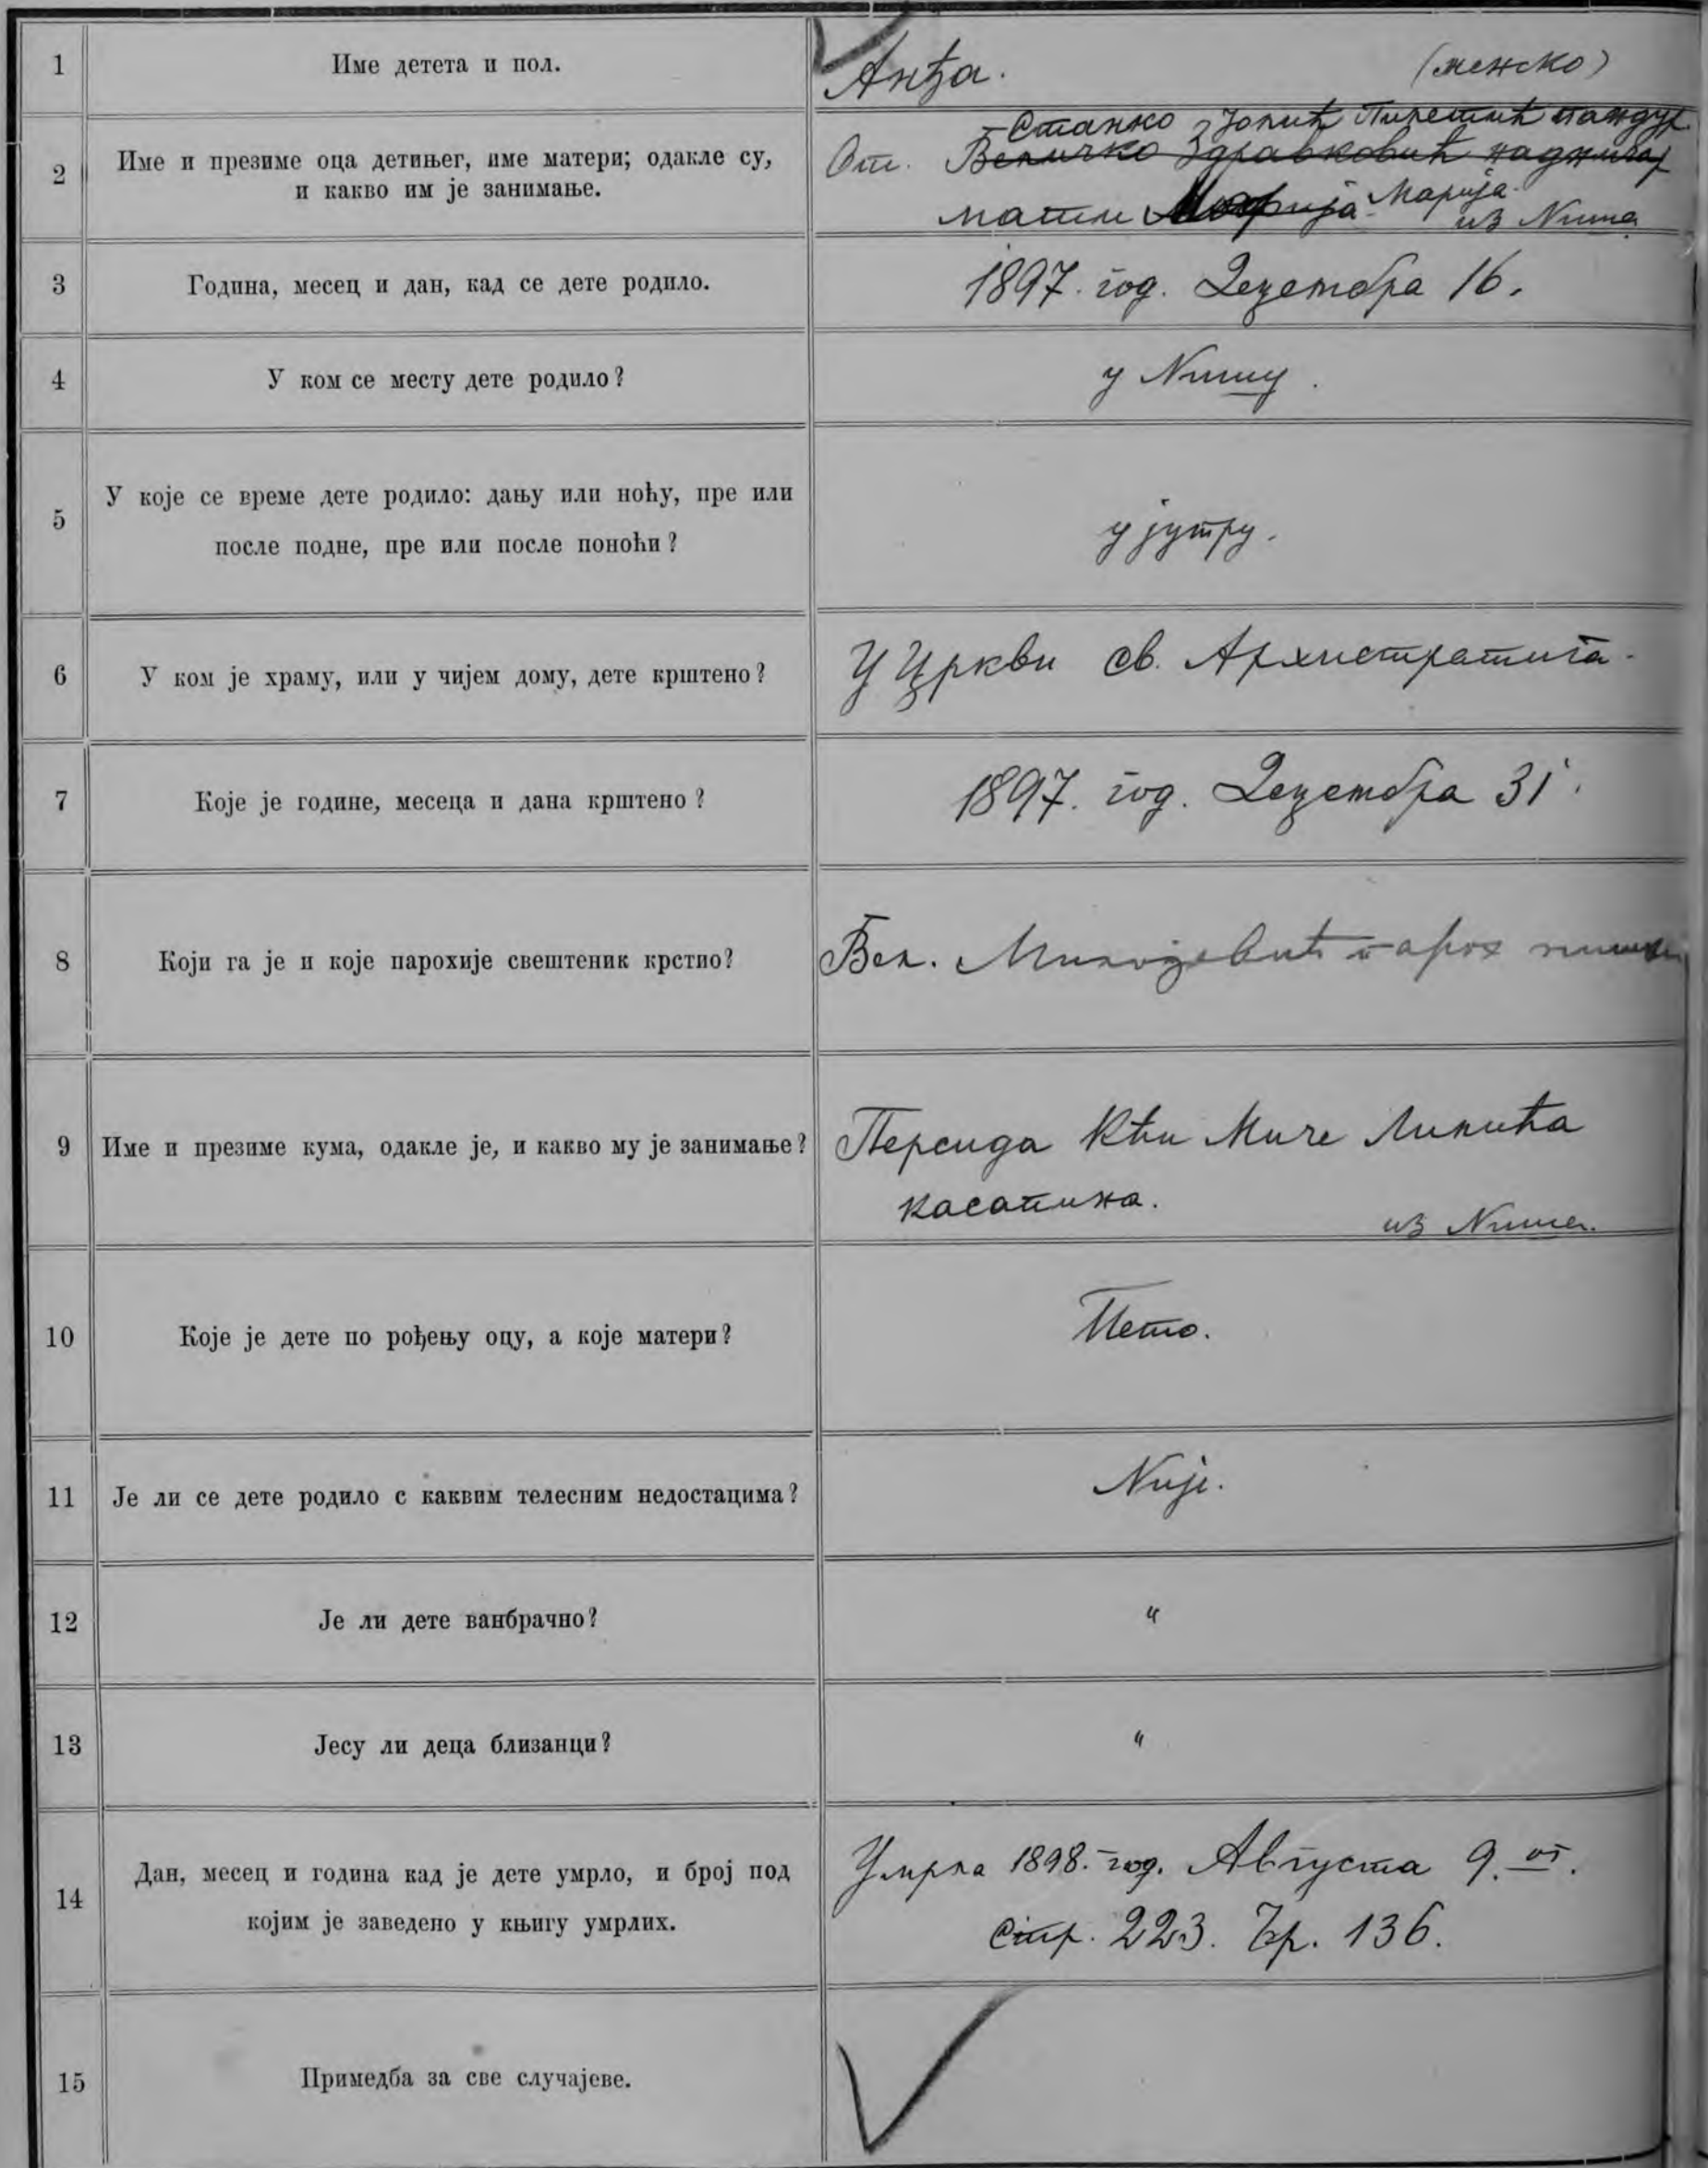 1 Име детета и пол. Анђа. (женско)
2 Име и презиме оца детињег, име матери; одакле су, и какво им је занимање.
Станко Пиретић пандур
От. Величко Здравковић надничар
мати Марија Марија из Ниша
3 Година, месец и дан, кад се дете родило. 1897. год. Децембра 16.
4 У ком се месту дете родило? у Нишу.
5 У које се време дете родило: дању или ноћу, пре или
после подне, пре или после поноћи? у јутру.
6 У ком је храму, или у чијем дому, дете крштено? У Цркви св. Архистратига
7 Које је године, месеца и дана крштено? 1897. год. Децембра 31.
8 Који га је и које парохије свештеник крстио? Вел. Милојевић парох нишки
9 Име и презиме кума, одакле је, и какво му је занимање? Персида кћи Миче Лилића
касапина. из Ниша.
10 Које је дете по рођењу оцу, а које матери? Пето.
11 Је ли се дете родило с каквим телесним недостацима? Није.
12 Је ли дете ванбрачно? "
13 Јесу ли деца близанци? "
14 Дан, месец и година кад је дете умрло, и број под
којим је заведено у књигу умрлих.
Умрла 1898. год. Августа 9.
стр. 223. Бр. 136.
15 Примедба за све случајеве.